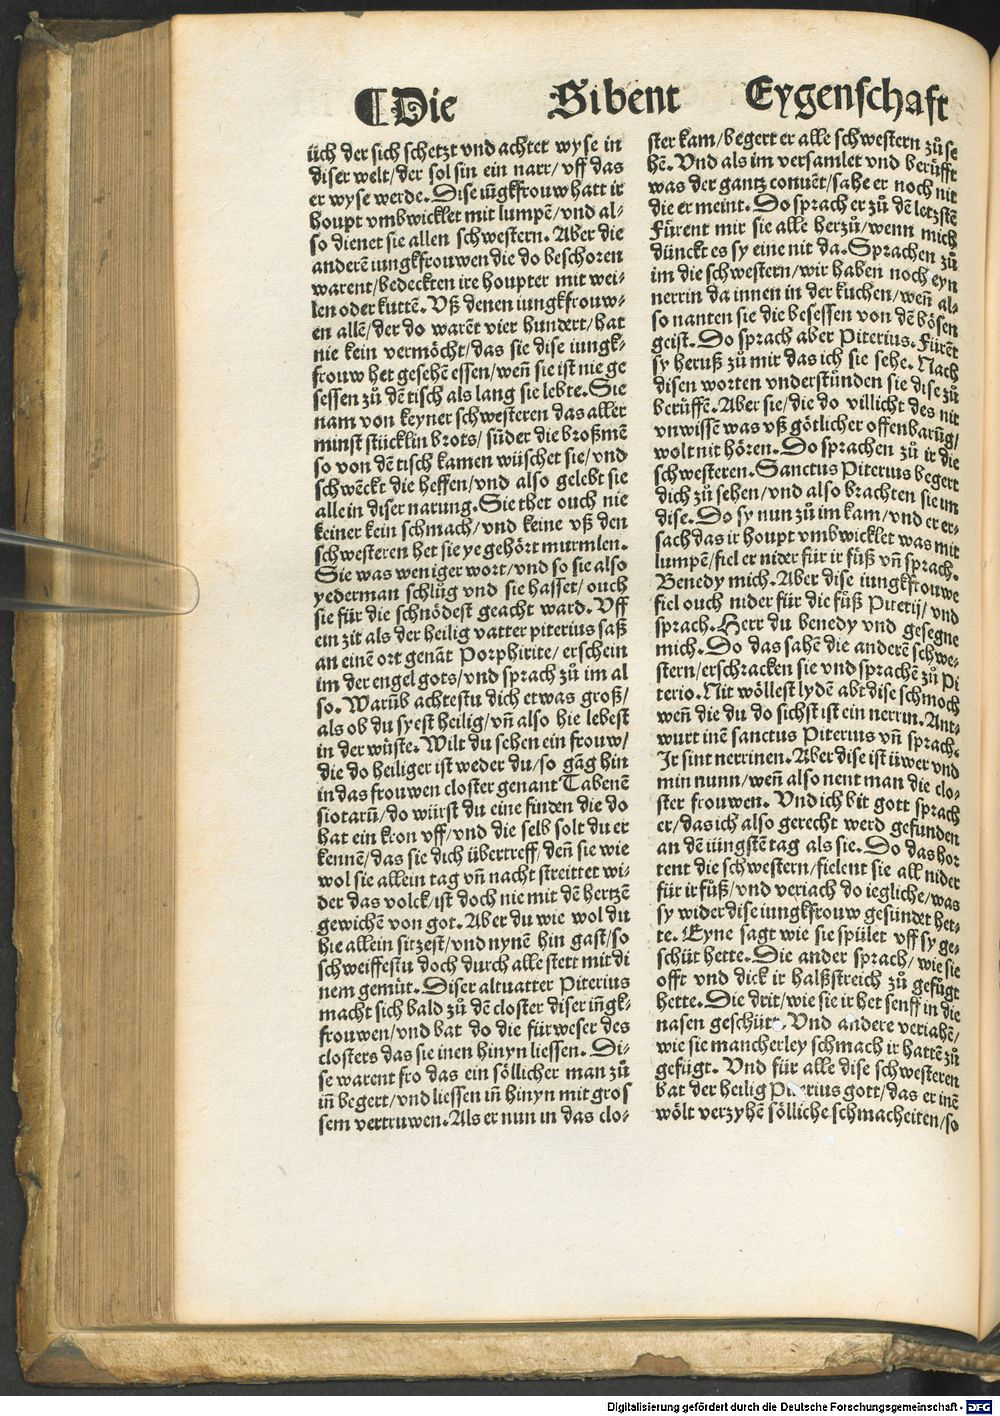 ¶Die Sibent Eygenschaft
üch der sich schetzt vnd achtet wyse in
diser welt/der sol sin ein narr/vff das
er wyse werde. Dise iūgkfrouw hatt ir
houpt vmbwicklet mit lumpē/vnd al-
so dienet sie allen schwestern. Aber die
anderē iungkfrouwen die do beschoren
warent/bedeckten ire houpter mit wei-
len oder kuttē. Vß denen iungkfrouw-
en allē/der do warēt vier hundert/hat
nie kein vermöcht/das sie dise iungk-
frouw het gesehē essen/weñ sie ist nie ge
sessen zů dē tisch als lang sie lebte. Sie
nam von keyner schwesteren das aller
minst stücklin brots/sūder die broßmē
so von dē tisch kamen wüschet sie/vnd
schwēckt die heffen/vnd also gelebt sie
allein diser narung. Sie thet ouch nie
keiner kein schmach/vnd keine vß den
schwesteren het sie ye gehört murmlen.
Sie was weniger wort/vnd so sie also
yederman schlůg vnd sie hasset/ouch
sie für die schnödest geacht ward. Vff
ein zit als der heilig vatter piterius saß
an einē ort genāt Porphirite/erschein
im der engel gots/vnd sprach zů im al
so. Warūb achtestu dich etwas groß/
als ob du syest heilig/vñ also hie lebest
in der wüste. Wilt du sehen ein frouw/
die do heiliger ist weder du/so gāg hin
in das frouwen closter genant Tabenē
siotarū/do würst du eine finden die do
hat ein kron vff/vnd die selb solt du er
kennē/das sie dich übertreff/deñ sie wie
wol sie allein tag vñ nacht streittet wi-
der das volck/ist doch nie mit dē hertzē
gewichē von got. Aber du wie wol du
hie allein sitzest/vnd nynē hin gast/so
schweiffestu doch durch alle stett mit di
nem gemüt. Diser altuatter Piterius
macht sich bald zů dē closter diser iñgk-
frouwen/vnd bat do die fürweser des
closters das sie inen hinyn liessen. Di-
se warent fro das ein söllicher man zů
iñ begert/vnd liessen iñ hinyn mit gros
sem vertruwen. Als er nun in das clo-
ster kam/begert er alle schwestern zů se
hē. Vnd als im versamlet vnd berüfft
was der gantz conuēt/sahe er noch nit
die er meint. Do sprach er zů dē letzstē
Fürent mir sie alle herzů/wenn mich
dünckt es sy eine nit da. Sprachen zů
im die schwestern/wir haben noch eyn
nerrin da innen in der kuchen/weñ al-
so nanten sie die besessen von dē bösen
geist. Do sprach aber Piterius. Fürēt
sy heruß zů mir das ich sie sehe. Nach
disen worten vnderstůnden sie dise zů
berüffē. Aber sie/die do villicht des nit
vnwissē was vß götlicher offenbarūg/
wolt nit hören. Do sprachen zů ir die
schwesteren. Sanctus Piterius begert
dich zů sehen/vnd also brachten sie im
dise. Do sy nun zů im kam/vnd er er-
sach das ir houpt vmbwicklet was mit
lumpē/fiel er nider für ir fůß vñ sprach.
Benedy mich. Aber dise iungkfrouwe
fiel ouch nider für die fůß Piterij/vnd
sprach. Herr du benedy vnd gesegne
mich. Do das sahē die anderē schwe-
stern/erschracken sie vnd sprachē zů Pi
terio. Nit wöllest lydē abt dise schmoch
weñ die du do sichst ist ein nerrin. Ant-
wurt inē sanctus Piterius vñ sprach.
Ir sint nerrinen. Aber dise ist üwer vnd
min nunn/weñ also nent man die clo-
ster frouwen. Vnd ich bit gott sprach
er/das ich also gerecht werd gefunden
an dē iüngstē tag als sie. Do das hor
tent die schwestern/fielent sie all nider
für ir fůß/vnd veriach do iegliche/was
sy wider dise iungkfrouw gesündet het-
te. Eyne sagt wie sie spület vff sy ge-
schüt hette. Die ander sprach/wie sie
offt vnd dick ir halßstreich zů gefůgt
hette. Die drit/wie sie ir het senff in die
nasen geschütt. Vnd andere veriahē/
wie sie mancherley schmach ir hattē zů
gefůgt. Vnd für alle dise schwesteren
bat der heilig Piterius gott/das er inē
wölt verzyhē söllich schmacheiten/so
Digitalisierung gefördert durch die Deutsche Forschungsgemeinschaft - DFG